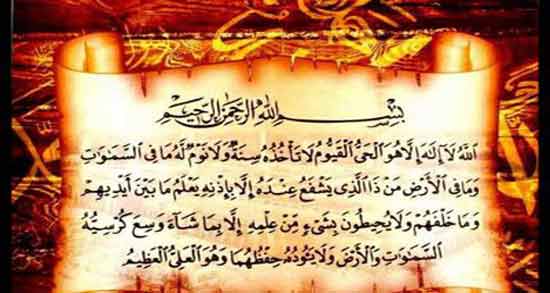 بِسْمِ اللهِ الرَّحْمٰنِ الرَّحِيْمِ
اللهُ لَآ إِلَهَ إِلَّا هُوَ الْحَيُّ الْقَيُّومُ لَا تَأْخُذُهُ سِنَةٌ وَلَا نَوْمٌ لَهُ مَا فِي السَّمَوَاتِ
وَمَا فِي الْأَرْضِ مَنْ ذَا الَّذِي يَشْفَعُ عِنْدَهُ إِلَّا بِإِذْنِهِ يَعْلَمُ مَا بَيْنَ أَيْدِيهِمْ
وَمَا خَلْفَهُمْ وَلَا يُحِيطُونَ بِشَيْءٍ مِّنْ عِلْمِهِ إِلَّا بِمَا شَآءَ وَسِعَ كُرْسِيُّهُ
السَّمَوَاتِ وَالْأَرْضَ وَلَا يَئُودُهُ حِفْظُهُمَا وَهُوَ الْعَلِيُّ الْعَظِيمُ